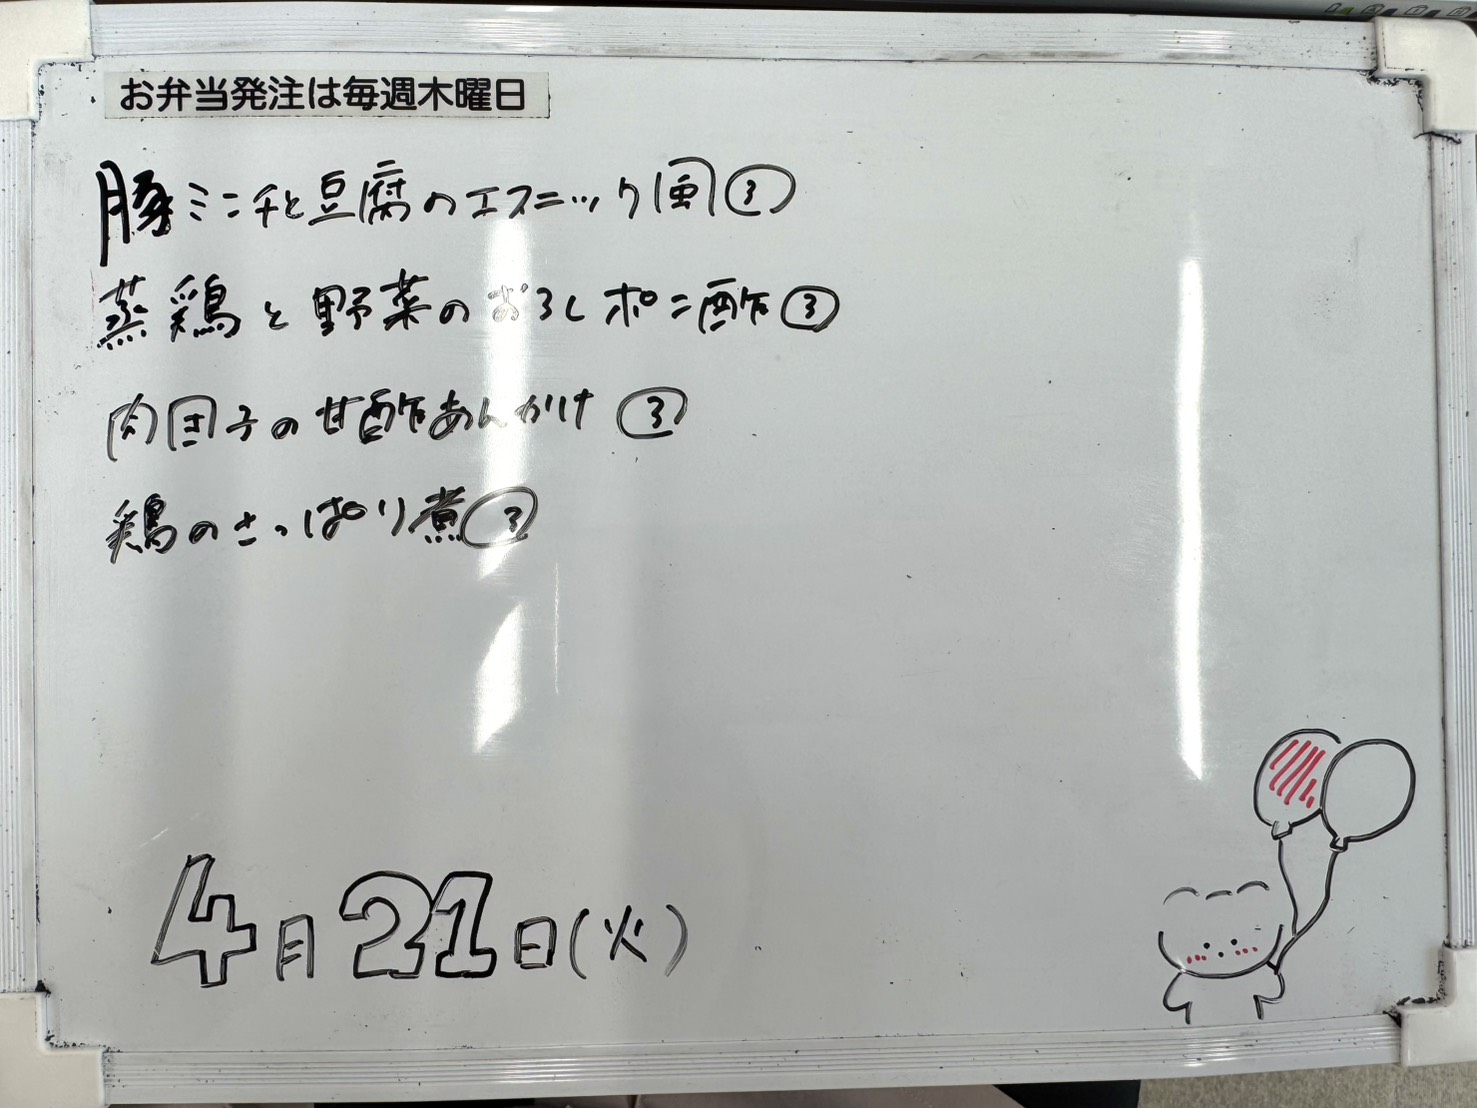 お弁当発注は毎週木曜日
豚ミンチと豆腐のエスニック風③
蒸鶏と野菜のおろしポン酢③
肉団子の甘酢あんかけ③
鶏のさっぱり煮③
4月21日(火)